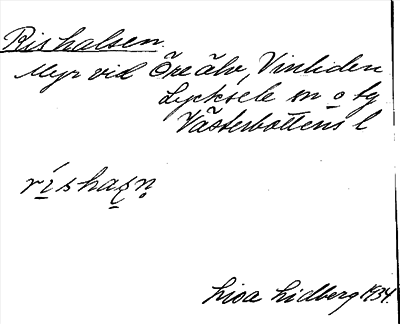 Rishalsen.
Myr vid Öre älv, Vinliden
Lycksele sn o tg
Västerbottens l
Lisa Lidberg 1934.